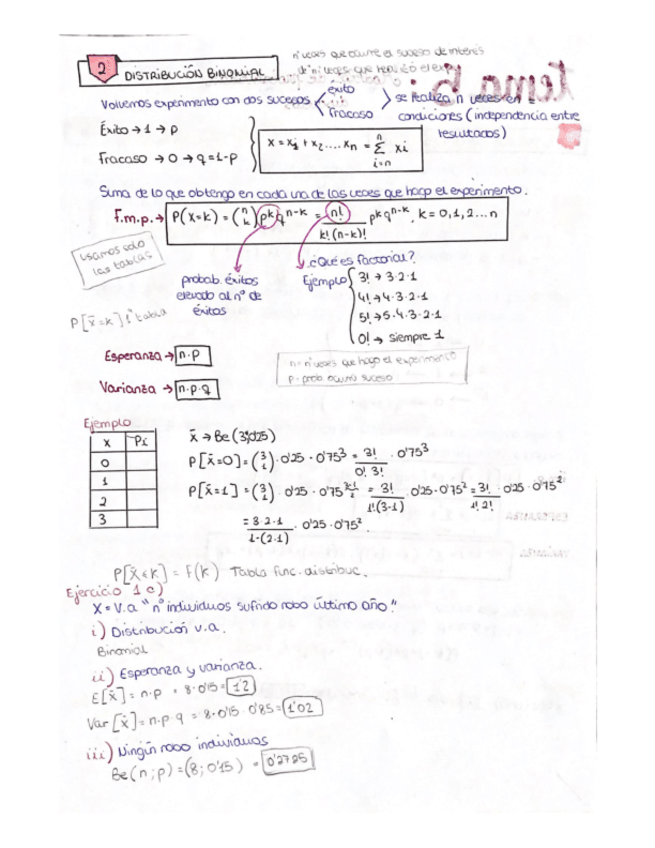 2 DISTRIBUCIÓN BINOMIAL
nº veces que ocurre el suceso de interés
de "n" veces que realizó el exp.
tema 5:
Volvemos experimento con dos sucesos < éxito fracaso > se realiza n veces en = condiciones (independencia entre resultados)
Éxito → 1 → p
Fracaso → 0 → q = 1-p
x = x₁ + x₂ .... xn = Σ xi
n
i=n
Suma de lo que obtengo en cada una de las veces que hago el experimento.
F.m.p. → P(x=k) = (n k) p^k q^n-k = n! / k!(n-k)! p^k q^n-k, k = 0,1,2...n
usamos solo
las tablas
probab. éxitos
elevado al nº de
éxitos
¿Qué es factorial?
Ejemplo
3! → 3·2·1
4! → 4·3·2·1
5! → 5·4·3·2·1
0! → siempre 1
P[x̄=k] 1ª tabla
Esperanza → n·p
Varianza → n·p·q
n = nº veces que hago el experimento
p = prob. ocurra suceso
Ejemplo
x Pi
0
1
2
3
P[x̄=0] = (3 i) · 0'25 · 0'75³ = 3! / 0! 3! · 0'75³
P[x̄=1] = (3 i) · 0'25 · 0'75^3-1 = 3! / 1!(3-1) · 0'25 · 0'75² = 3! / 1! 2! · 0'25 · 0'75²
= 3·2·1 / 1·(2·1) · 0'25 · 0'75²
P[x̄≤k] = F(k) Tabla func. distribuc.
Ejercicio 1 c)
X = V.a "nº individuos sufrido robo último año."
i) Distribución v.a.
Binomial
ii) Esperanza y varianza.
E[x̄] = n·p = 8·0'15 = 1'2
Var[x̄] = n·p·q = 8·0'15·0'85 = 1'02
iii) Ningún robo individuos
Be(n;p) = (8; 0'15) = 0'2725